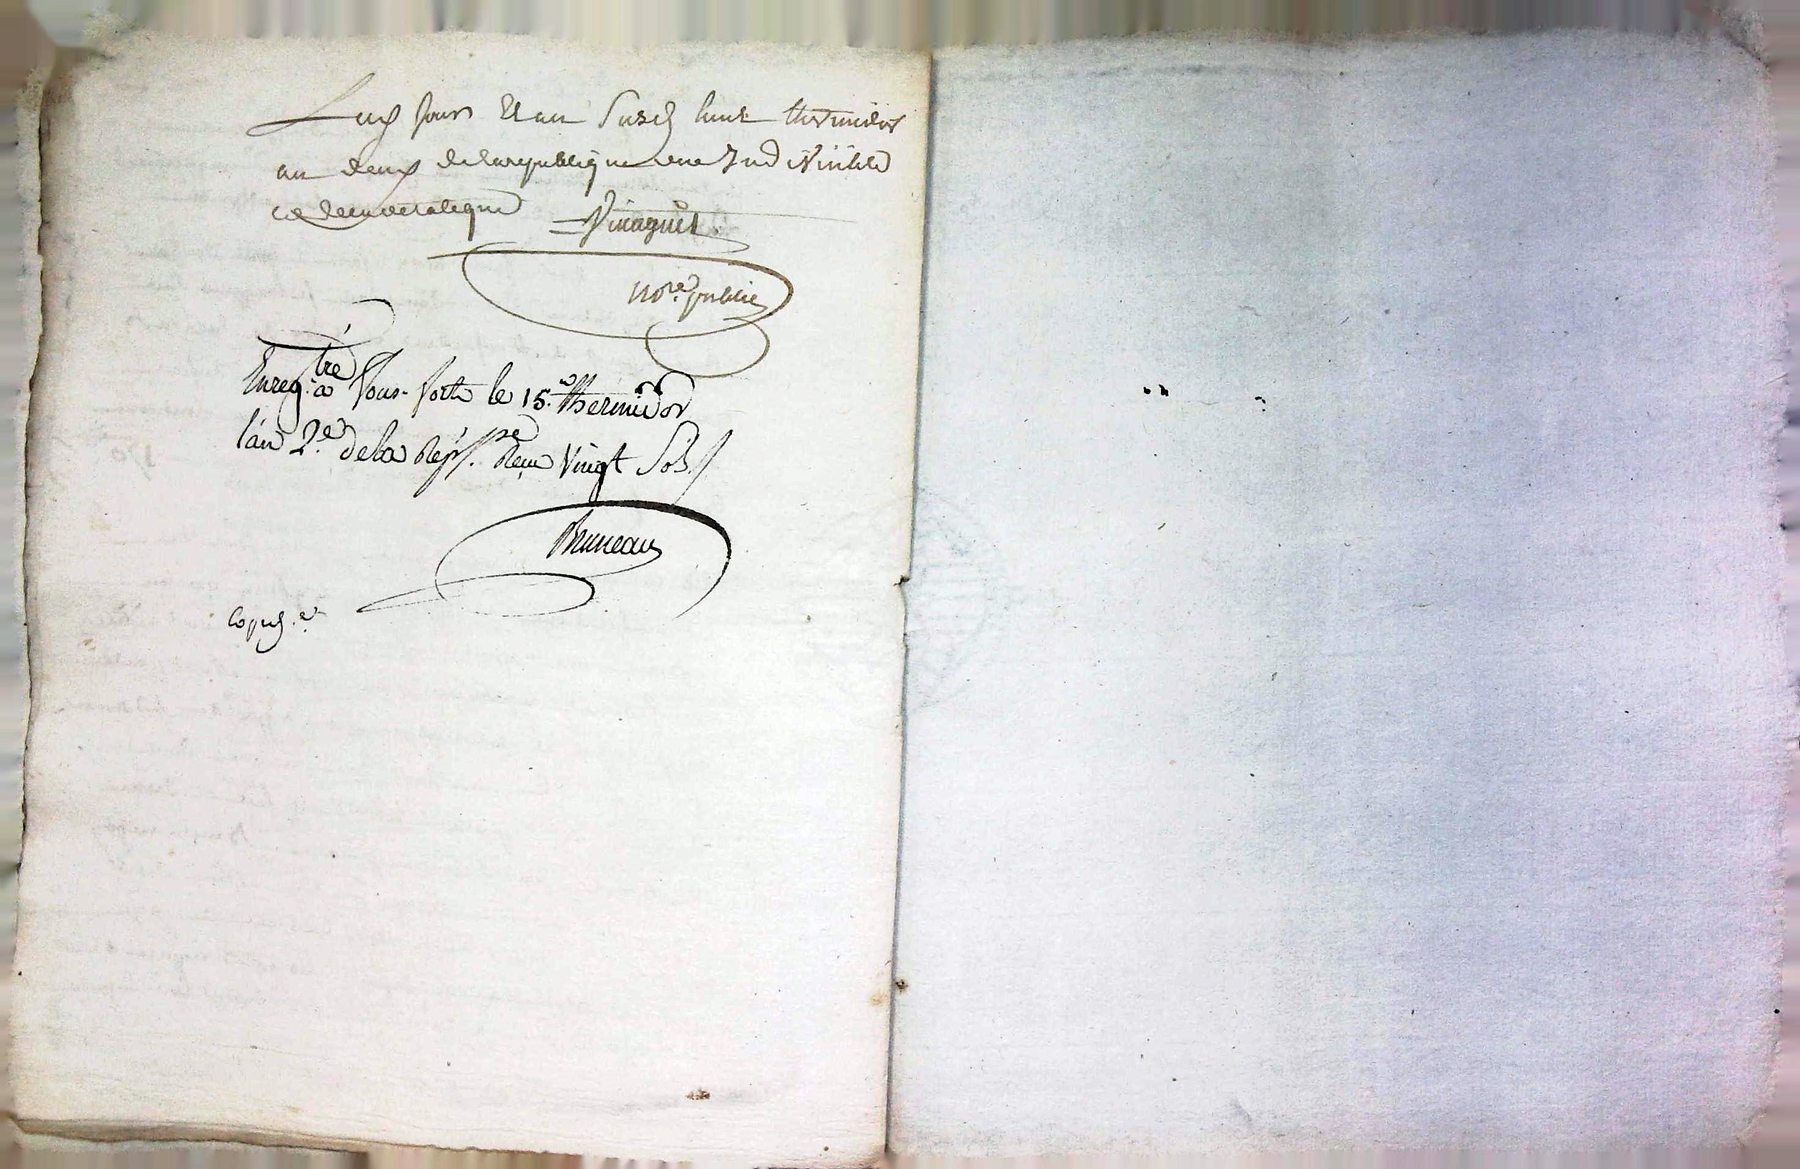 Les Jours Et an Susd. huit thermidor
an deux de la republique une Indivisible
et democratique Vinagnet
nore. public
Enreg.tré a Vous. le 15.e thermidor
l'an 2.e de la Rép.que Reçu Vingt Sols
Bruneau